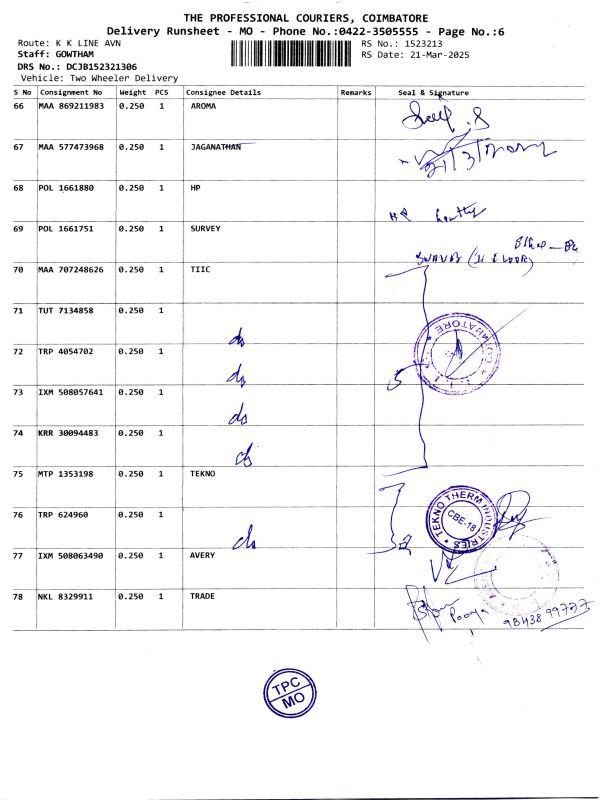 THE PROFESSIONAL COURIERS, COIMBATORE
Delivery Runsheet - MO - Phone No.:0422-3505555 - Page No.:6
Route: K K LINE AVN RS No.: 1523213
Staff: GOWTHAM RS Date: 21-Mar-2025
DRS No.: DCJB152321306
Vehicle: Two Wheeler Delivery
S No Consignment No Weight PCS Consignee Details Remarks Seal & Signature
66 MAA 869211983 0.250 1 AROMA
67 MAA 577473968 0.250 1 JAGANATHAN
68 POL 1661880 0.250 1 HP
HP
69 POL 1661751 0.250 1 SURVEY
SURVEY (II FLOOR)
70 MAA 707248626 0.250 1 TIIC
71 TUT 7134858 0.250 1
do
COIMBATORE
72 TRP 4054702 0.250 1
do
5
73 IXM 508057641 0.250 1
do
74 KRR 30094483 0.250 1
do
75 MTP 1353198 0.250 1 TEKNO
TEKNO THERM INDUSTRIES
CBE-18
76 TRP 624960 0.250 1
do
2
77 IXM 508063490 0.250 1 AVERY
78 NKL 8329911 0.250 1 TRADE
Pooja
98438 99727
TPC
MO